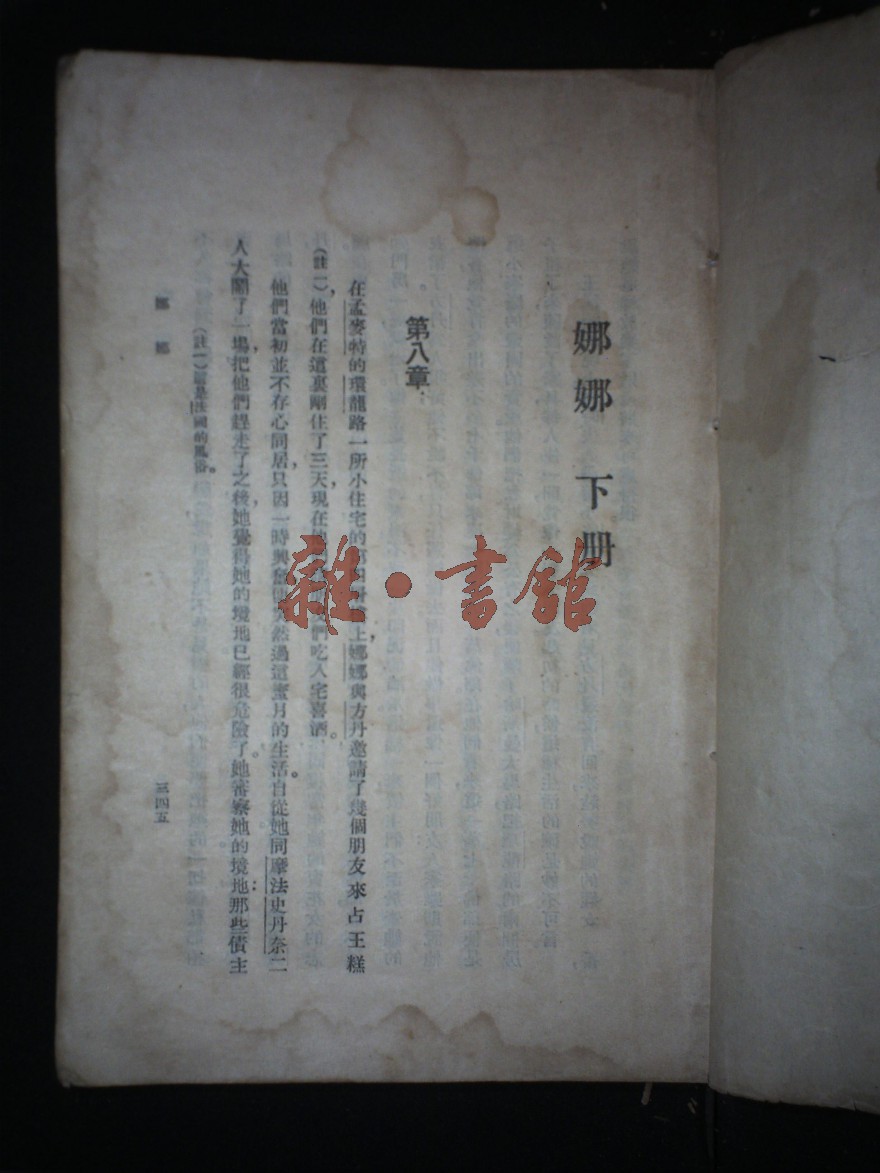 娜娜 下册
第八章
在孟麥特的環龍路一所小住宅的第四層樓上,娜娜與方丹邀請了幾個朋友來占王糕
(註一),他們在這裏剛住了三天,現在 們吃入宅喜酒。
他們當初並不存心同居,只因一時興奮,便突然過這蜜月的生活。自從她同摩法史丹奈二
人大鬧了一場,把他們趕走了之後,她覺得她的境地已經很危險了。她審察她的境地:那些債主
(註一)這是法國的風俗。
娜 娜
三四五
雜·書館